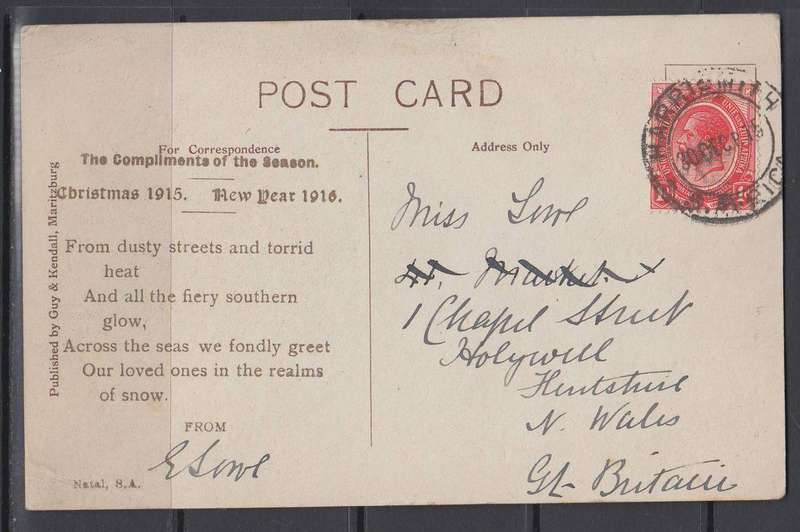 POST CARD
For Correspondence
The Compliments of the Season.
Christmas 1915. New Year 1916.
From dusty streets and torrid
heat
And all the fiery southern
glow,
Across the seas we fondly greet
Our loved ones in the realms
of snow.
FROM
E Lowe
Natal, S.A.
Published by Guy & Kendall, Maritzburg
Address Only
HARRISMITH
Miss Lowe
44, Market
1 Chapel Street
Holywell
Flintshire
N. Wales
Gt. Britain